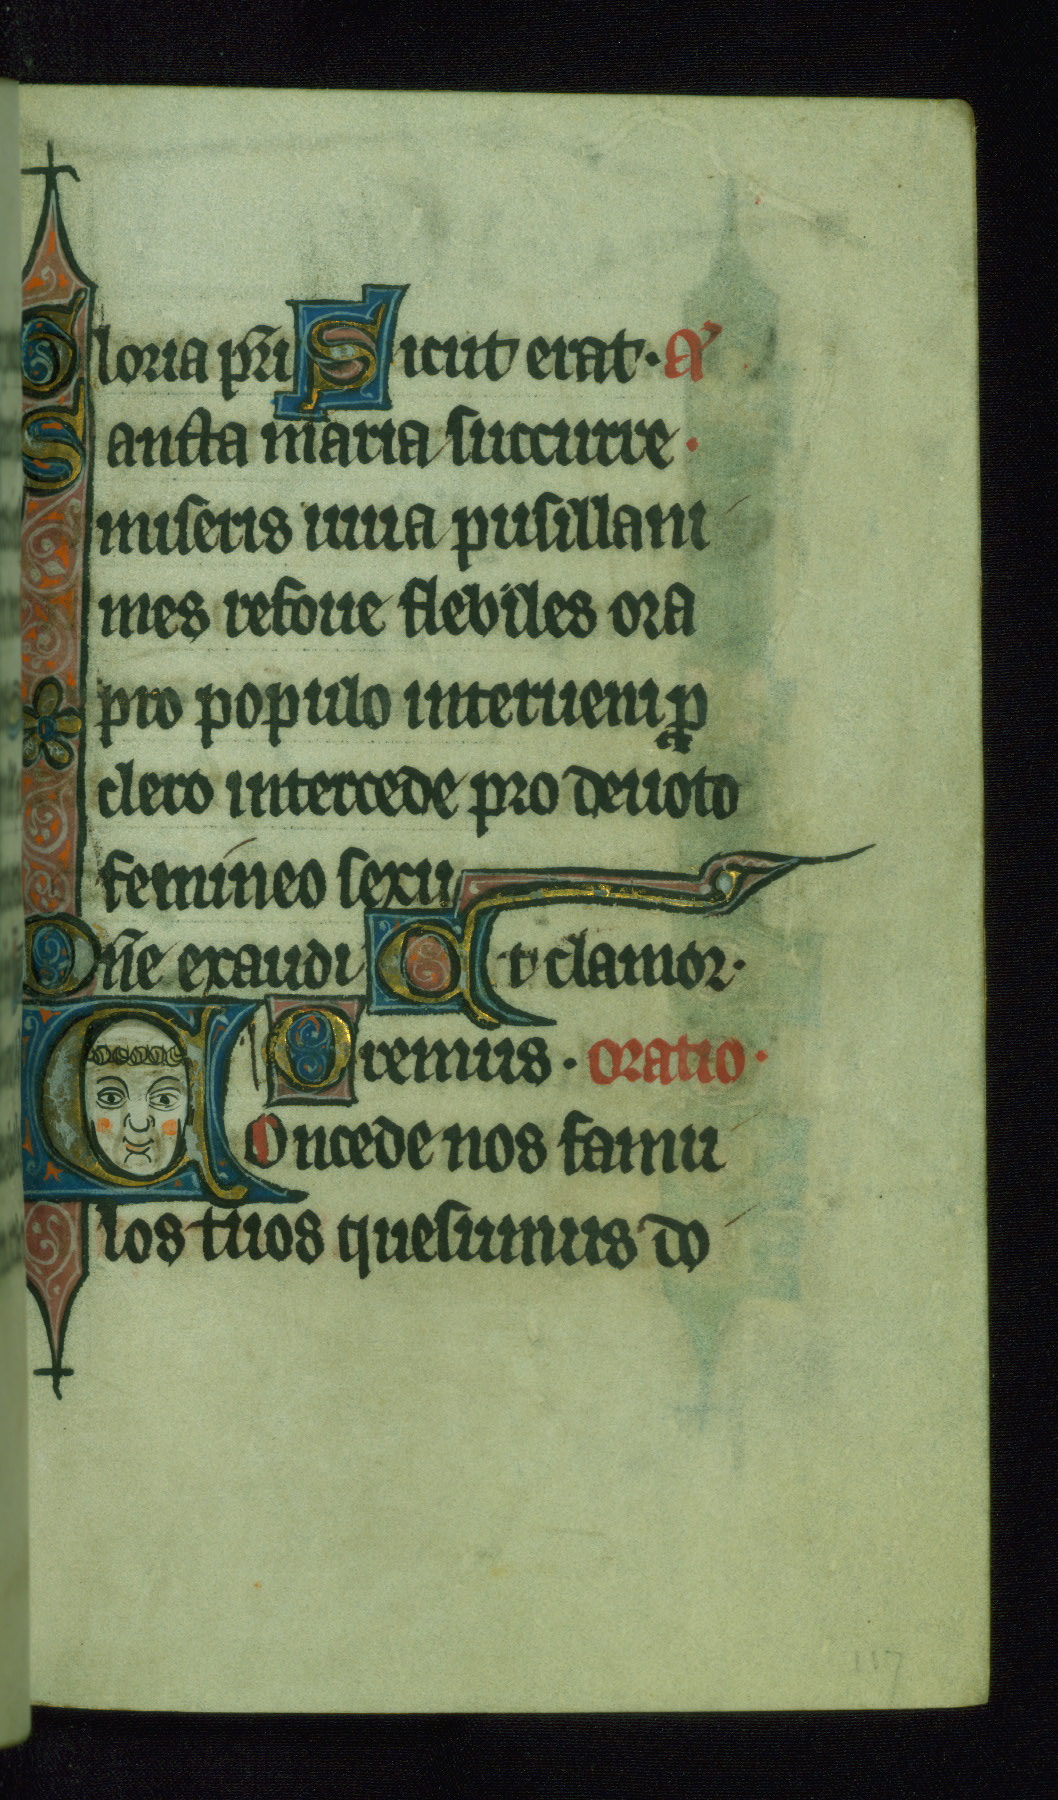 Gloria pr̃i Sicut erat · A͂
Sancta maria succurre ·
miseris iuua pusillani
mes refoue flebiles ora
pro populo interueni p̱
clero intercede pro deuoto
femineo sexu
Dñe exaudi Et clamor ·
Oremus · oratio ·
Concede nos famu
los tuos quesumus do
117